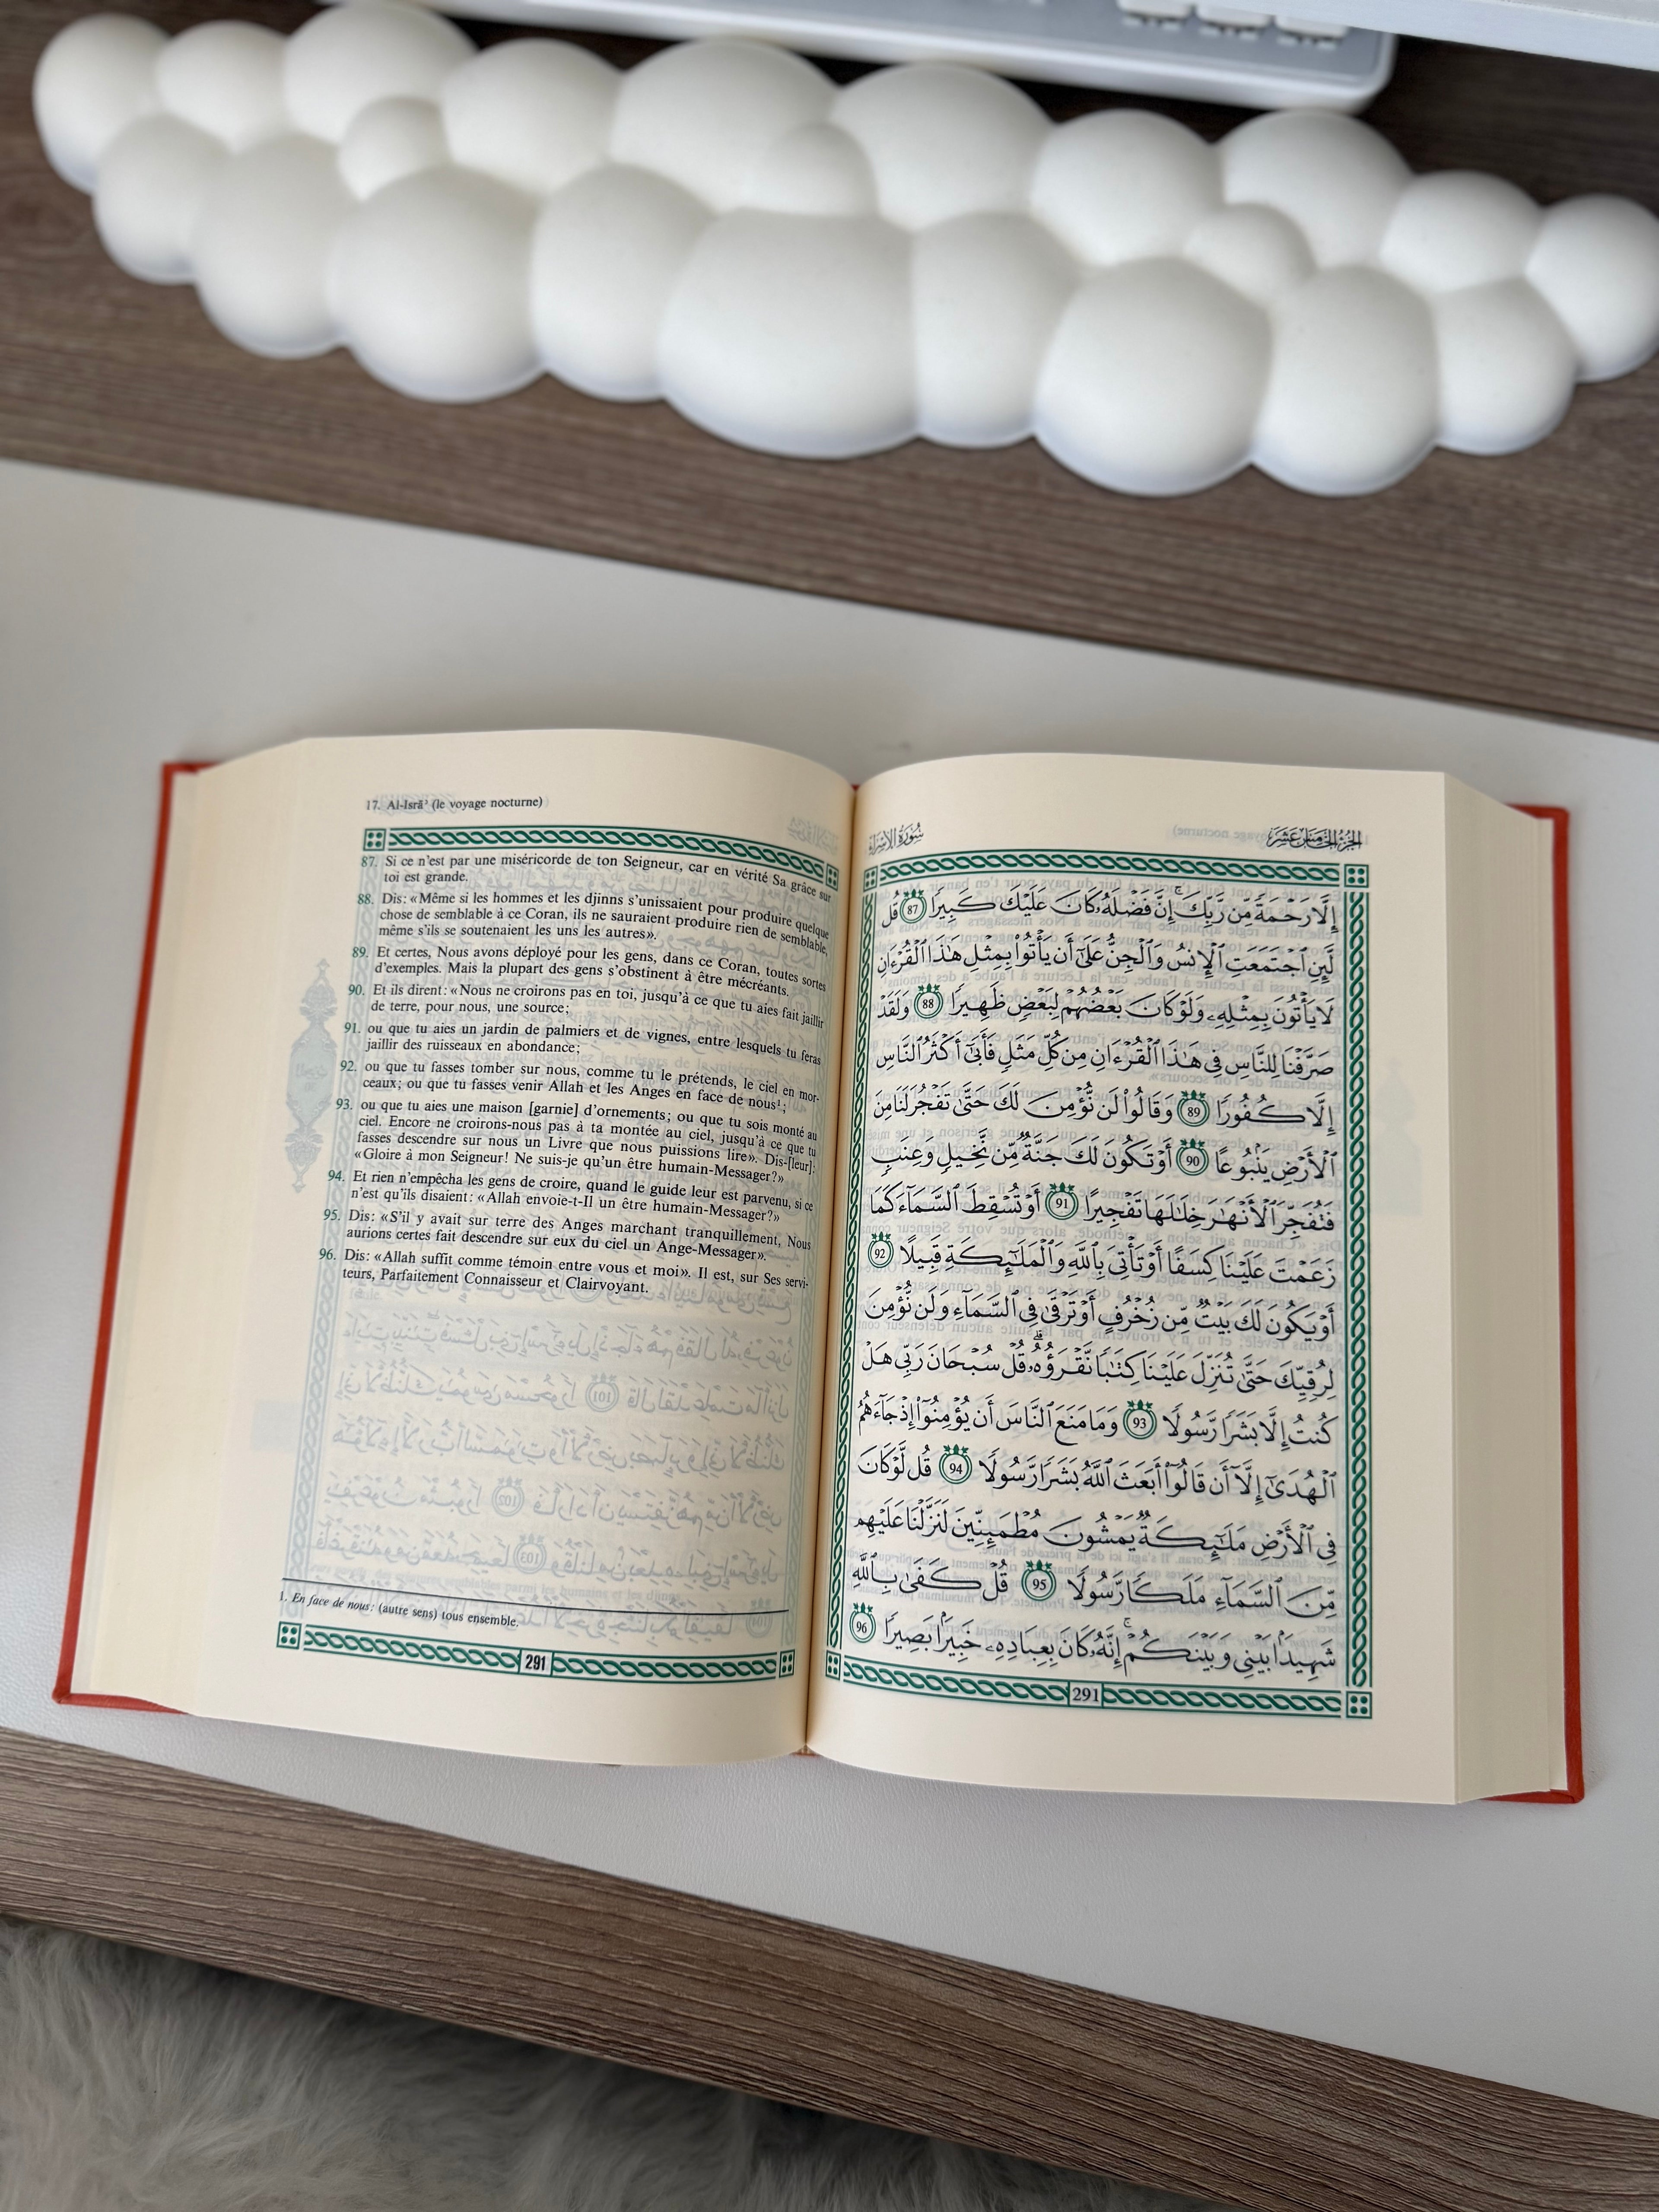 17. Al-Isrā' (le voyage nocturne)
87. Si ce n'est par une miséricorde de ton Seigneur, car en vérité Sa grâce sur
toi est grande.
88. Dis: «Même si les hommes et les djinns s'unissaient pour produire quelque
chose de semblable à ce Coran, ils ne sauraient produire rien de semblable,
même s'ils se soutenaient les uns les autres».
89. Et certes, Nous avons déployé pour les gens, dans ce Coran, toutes sortes
d'exemples. Mais la plupart des gens s'obstinent à être mécréants.
90. Et ils dirent: «Nous ne croirons pas en toi, jusqu'à ce que tu aies fait jaillir
de terre, pour nous, une source;
91. ou que tu aies un jardin de palmiers et de vignes, entre lesquels tu feras
jaillir des ruisseaux en abondance;
92. ou que tu fasses tomber sur nous, comme tu le prétends, le ciel en mor-
ceaux; ou que tu fasses venir Allah et les Anges en face de nous¹;
93. ou que tu aies une maison [garnie] d'ornements; ou que tu sois monté au
ciel. Encore ne croirons-nous pas à ta montée au ciel, jusqu'à ce que tu
fasses descendre sur nous un Livre que nous puissions lire». Dis-[leur]:
«Gloire à mon Seigneur! Ne suis-je qu'un être humain-Messager?»
94. Et rien n'empêcha les gens de croire, quand le guide leur est parvenu, si ce
n'est qu'ils disaient: «Allah envoie-t-Il un être humain-Messager?»
95. Dis: «S'il y avait sur terre des Anges marchant tranquillement, Nous
aurions certes fait descendre sur eux du ciel un Ange-Messager».
96. Dis: «Allah suffit comme témoin entre vous et moi». Il est, sur Ses servi-
teurs, Parfaitement Connaisseur et Clairvoyant.
1. En face de nous: (autre sens) tous ensemble.
291
الجزء الخامس عشر
سورة الإسراء
إِلَّا رَحْمَةً مِّن رَّبِّكَ ۚ إِنَّ فَضْلَهُۥ كَانَ عَلَيْكَ كَبِيرًا 87 قُل
لَّئِنِ ٱجْتَمَعَتِ ٱلْإِنسُ وَٱلْجِنُّ عَلَىٰٓ أَن يَأْتُوا۟ بِمِثْلِ هَـٰذَا ٱلْقُرْءَانِ
لَا يَأْتُونَ بِمِثْلِهِۦ وَلَوْ كَانَ بَعْضُهُمْ لِبَعْضٍ ظَهِيرًا 88 وَلَقَدْ
صَرَّفْنَا لِلنَّاسِ فِى هَـٰذَا ٱلْقُرْءَانِ مِن كُلِّ مَثَلٍ فَأَبَىٰٓ أَكْثَرُ ٱلنَّاسِ
إِلَّا كُفُورًا 89 وَقَالُوا۟ لَن نُّؤْمِنَ لَكَ حَتَّىٰ تَفْجُرَ لَنَا مِنَ
ٱلْأَرْضِ يَنۢبُوعًا 90 أَوْ تَكُونَ لَكَ جَنَّةٌ مِّن نَّخِيلٍ وَعِنَبٍ
فَتُفَجِّرَ ٱلْأَنْهَـٰرَ خِلَـٰلَهَا تَفْجِيرًا 91 أَوْ تُسْقِطَ ٱلسَّمَآءَ كَمَا
زَعَمْتَ عَلَيْنَا كِسَفًا أَوْ تَأْتِىَ بِٱللَّهِ وَٱلْمَلَـٰٓئِكَةِ قَبِيلًا 92
أَوْ يَكُونَ لَكَ بَيْتٌ مِّن زُخْرُفٍ أَوْ تَرْقَىٰ فِى ٱلسَّمَآءِ وَلَن نُّؤْمِنَ
لِرُقِيِّكَ حَتَّىٰ تُنَزِّلَ عَلَيْنَا كِتَـٰبًا نَّقْرَؤُهُۥ ۗ قُلْ سُبْحَانَ رَبِّى هَلْ
كُنتُ إِلَّا بَشَرًا رَّسُولًا 93 وَمَا مَنَعَ ٱلنَّاسَ أَن يُؤْمِنُوٓا۟ إِذْ جَآءَهُمُ
ٱلْهُدَىٰٓ إِلَّآ أَن قَالُوٓا۟ أَبَعَثَ ٱللَّهُ بَشَرًا رَّسُولًا 94 قُل لَّوْ كَانَ
فِى ٱلْأَرْضِ مَلَـٰٓئِكَةٌ يَمْشُونَ مُطْمَئِنِّينَ لَنَزَّلْنَا عَلَيْهِم
مِّنَ ٱلسَّمَآءِ مَلَكًا رَّسُولًا 95 قُلْ كَفَىٰ بِٱللَّهِ
شَهِيدًۢا بَيْنِى وَبَيْنَكُمْ ۚ إِنَّهُۥ كَانَ بِعِبَادِهِۦ خَبِيرًۢا بَصِيرًا 96
291